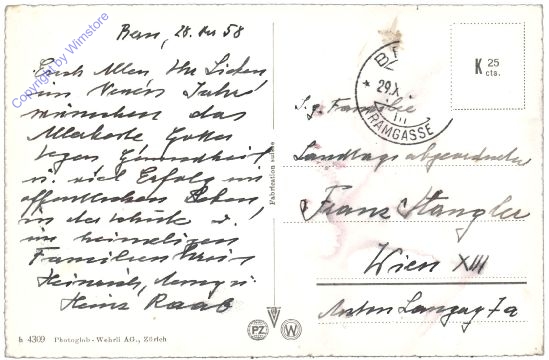 Copyright by Wimstore
Bern, 28. Dez 58
Euch Allen, Ihr Lieben
im Neuen Jahre
wünschen das
Allerbeste Gottes
Segen Gesundheit
u. viel Erfolg im
öffentlichen Leben,
in der Schule u.
im heimeligen
Familienkreis
Heinrich, u.
Heinz Raab
h 4309 Photoglob-Wehrli AG., Zürich
Fabrication suisse
PZ
W
29.X
KRAMGASSE
K 25 cts.
S. g. Familie
Landtagsabgeordneter
Franz Stangler
Wien XIII
Anton Langag 7a